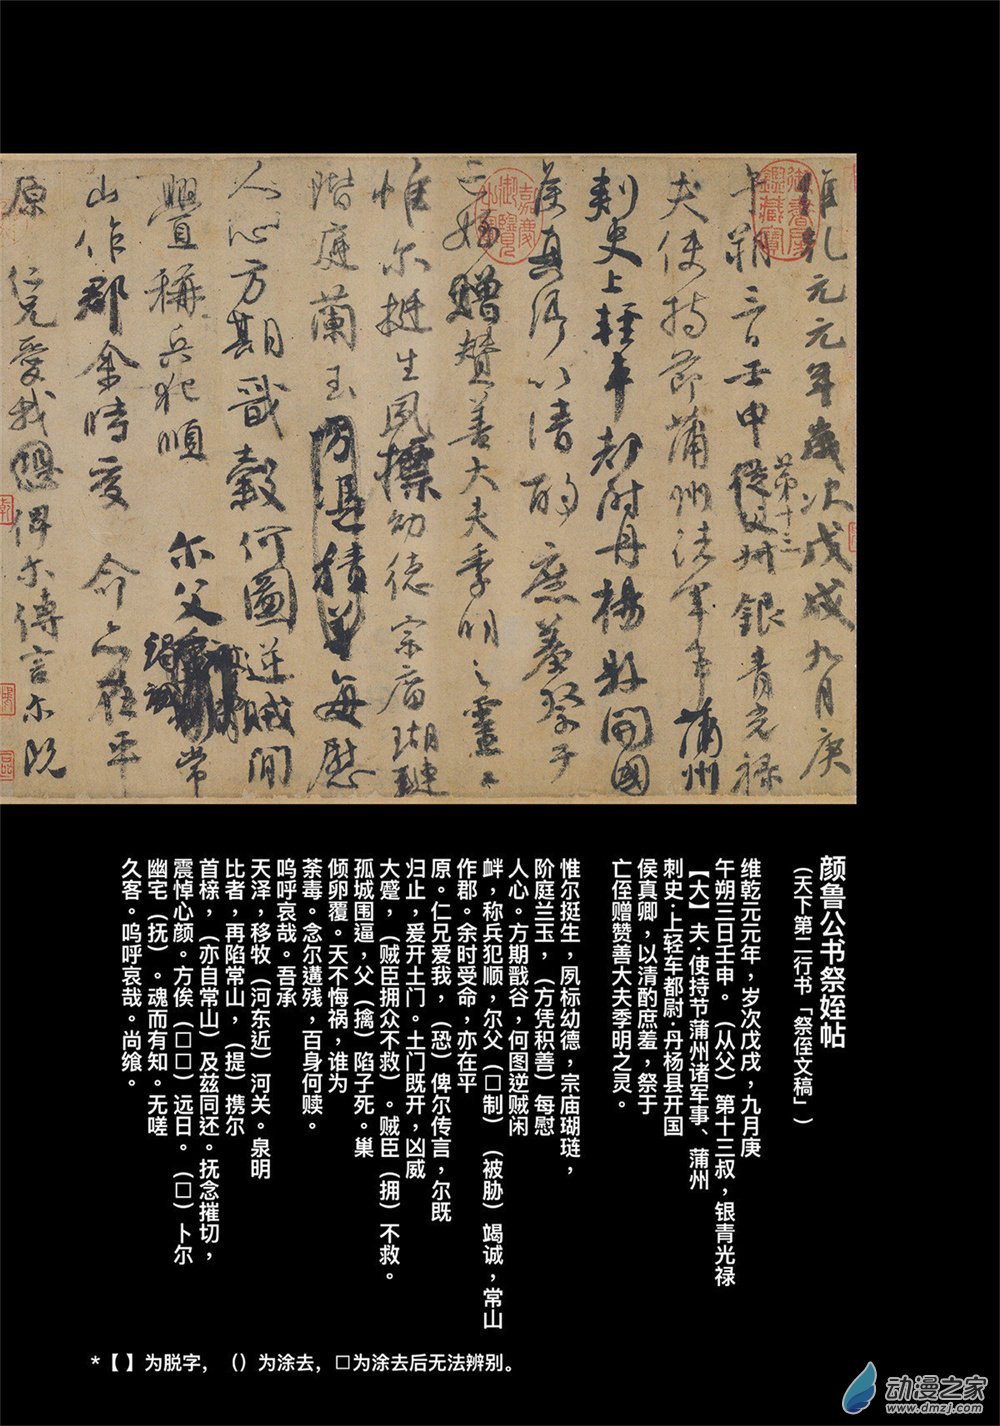 惟乾元元年歲次戊戌九月庚
午朔三日壬申第十三從父叔銀青光禄
夫使持節蒲州諸軍事蒲州
刺史上輕車都尉丹楊縣開國
侯真卿以清酌庶羞祭于
亡姪贈贊善大夫季明之靈
惟尔挺生夙標幼德宗廟瑚璉
階庭蘭玉方憑積善每慰
人心方期戩穀何圖逆賊閒
釁稱兵犯順尔父竭誠常
山作郡余時受命亦在平
原仁兄愛我恐俾尔傳言尔既
颜鲁公书祭姪帖
（天下第二行书「祭侄文稿」）
维乾元元年，岁次戊戌，九月庚
午朔三日壬申。（从父）第十三叔，银青光禄
【大】夫·使持节蒲州诸军事、蒲州
刺史·上轻车都尉·丹杨县开国
侯真卿，以清酌庶羞，祭于
亡侄赠赞善大夫季明之灵。
惟尔挺生，夙标幼德，宗庙瑚琏，
阶庭兰玉，（方凭积善）每慰
人心。方期戬谷，何图逆贼闲
衅，称兵犯顺，尔父（□制）（被胁）竭诚，常山
作郡。余时受命，亦在平
原。仁兄爱我，（恐）俾尔传言，尔既
归止，爰开土门。土门既开，凶威
大蹙，（贼臣拥众不救）。贼臣（拥）不救。
孤城围逼，父（擒）陷子死。巢
倾卵覆。天不悔祸，谁为
荼毒。念尔遘残，百身何赎。
呜呼哀哉。吾承
天泽，移牧（河东近）河关。泉明
比者，再陷常山，（提）携尔
首榇，（亦自常山）及兹同还。抚念摧切，
震悼心颜。方俟（□□）远日。（□）卜尔
幽宅（抚）。魂而有知。无嗟
久客。呜呼哀哉。尚飨。
*【 】为脱字，（）为涂去，□为涂去后无法辨别。
动漫之家
www.dmzj.com